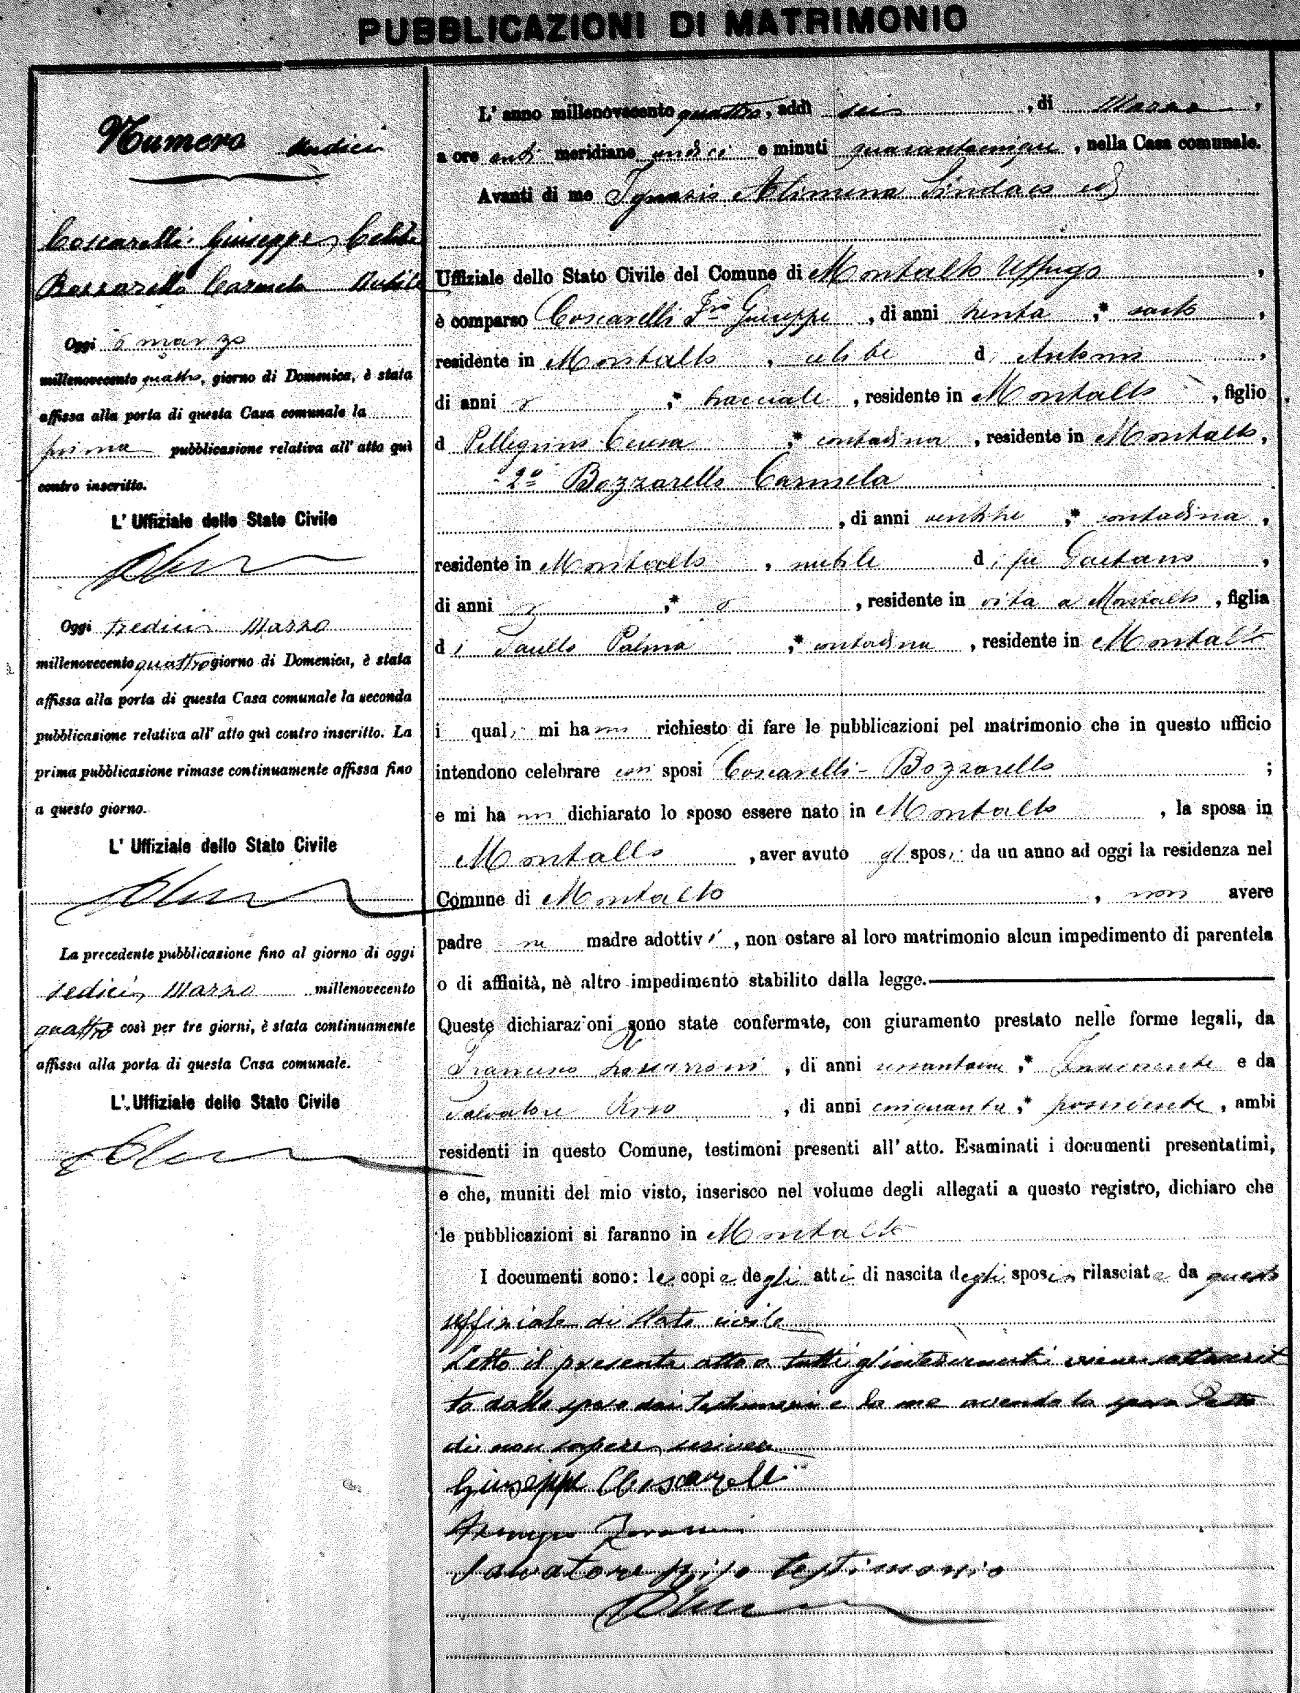 PUBBLICAZIONI DI MATRIMONIO
Numero undici
Coscarelli Giuseppe, Celibe
Bozzarello Carmela Nubile
Oggi 6 marzo
millenovecento quattro, giorno di Domenica, è stata
affissa alla porta di questa Casa comunale la
prima pubblicazione relativa all' atto quì
contro inscritto.
L' Uffiziale dello Stato Civile
Oggi tredici Marzo
millenovecento quattro giorno di Domenica, è stata
affissa alla porta di questa Casa comunale la seconda
pubblicazione relativa all' atto quì contro inscritto. La
prima pubblicazione rimase continuamente affissa fino
a questo giorno.
L' Uffiziale dello Stato Civile
La precedente pubblicazione fino al giorno di oggi
sedici Marzo millenovecento
quattro così per tre giorni, è stata continuamente
affissa alla porta di questa Casa comunale.
L' Uffiziale dello Stato Civile
L' anno millenovecento quattro, addì sei, di Marzo,
a ore anti meridiane undici e minuti quarantacinque, nella Casa comunale.
Avanti di me Ignazio Alimena Sindaco ed
Uffiziale dello Stato Civile del Comune di Montalto Uffugo,
è comparso Coscarelli Fro Giuseppe, di anni trenta,* sarto,
residente in Montalto, celibe di Antonio,
di anni,* bracciale, residente in Montalto, figlio
d Pellegrino Teresa,* contadina, residente in Montalto,
2° Bozzarello Carmela
, di anni ventitre,* contadina,
residente in Montalto, nubile di fu Gaetano,
di anni,*, residente in vita a Montalto, figlia
di Saullo Palma,* contadina, residente in Montalto
i quali mi hanno richiesto di fare le pubblicazioni pel matrimonio che in questo ufficio
intendono celebrare essi sposi Coscarelli - Bozzarello;
e mi hanno dichiarato lo sposo essere nato in Montalto, la sposa in
Montalto, aver avuto gli sposi da un anno ad oggi la residenza nel
Comune di Montalto, non avere
padre ne madre adottivi, non ostare al loro matrimonio alcun impedimento di parentela
o di affinità, nè altro impedimento stabilito dalla legge.
Queste dichiarazioni sono state confermate, con giuramento prestato nelle forme legali, da
Francesco, di anni,* e da
Salvatore, di anni cinquanta,* possidente, ambi
residenti in questo Comune, testimoni presenti all' atto. Esaminati i documenti presentatimi,
e che, muniti del mio visto, inserisco nel volume degli allegati a questo registro, dichiaro che
le pubblicazioni si faranno in Montalto
I documenti sono: le copie degli atti di nascita degli sposi, rilasciate da questo
uffiziale di stato civile
Letto il presente atto a tutti gl'intervenuti viene sottoscrit
to dallo sposo dai testimoni e da me avendo la sposa detto
di non sapere scrivere
Giuseppe Coscarelli
Salvatore testimonio